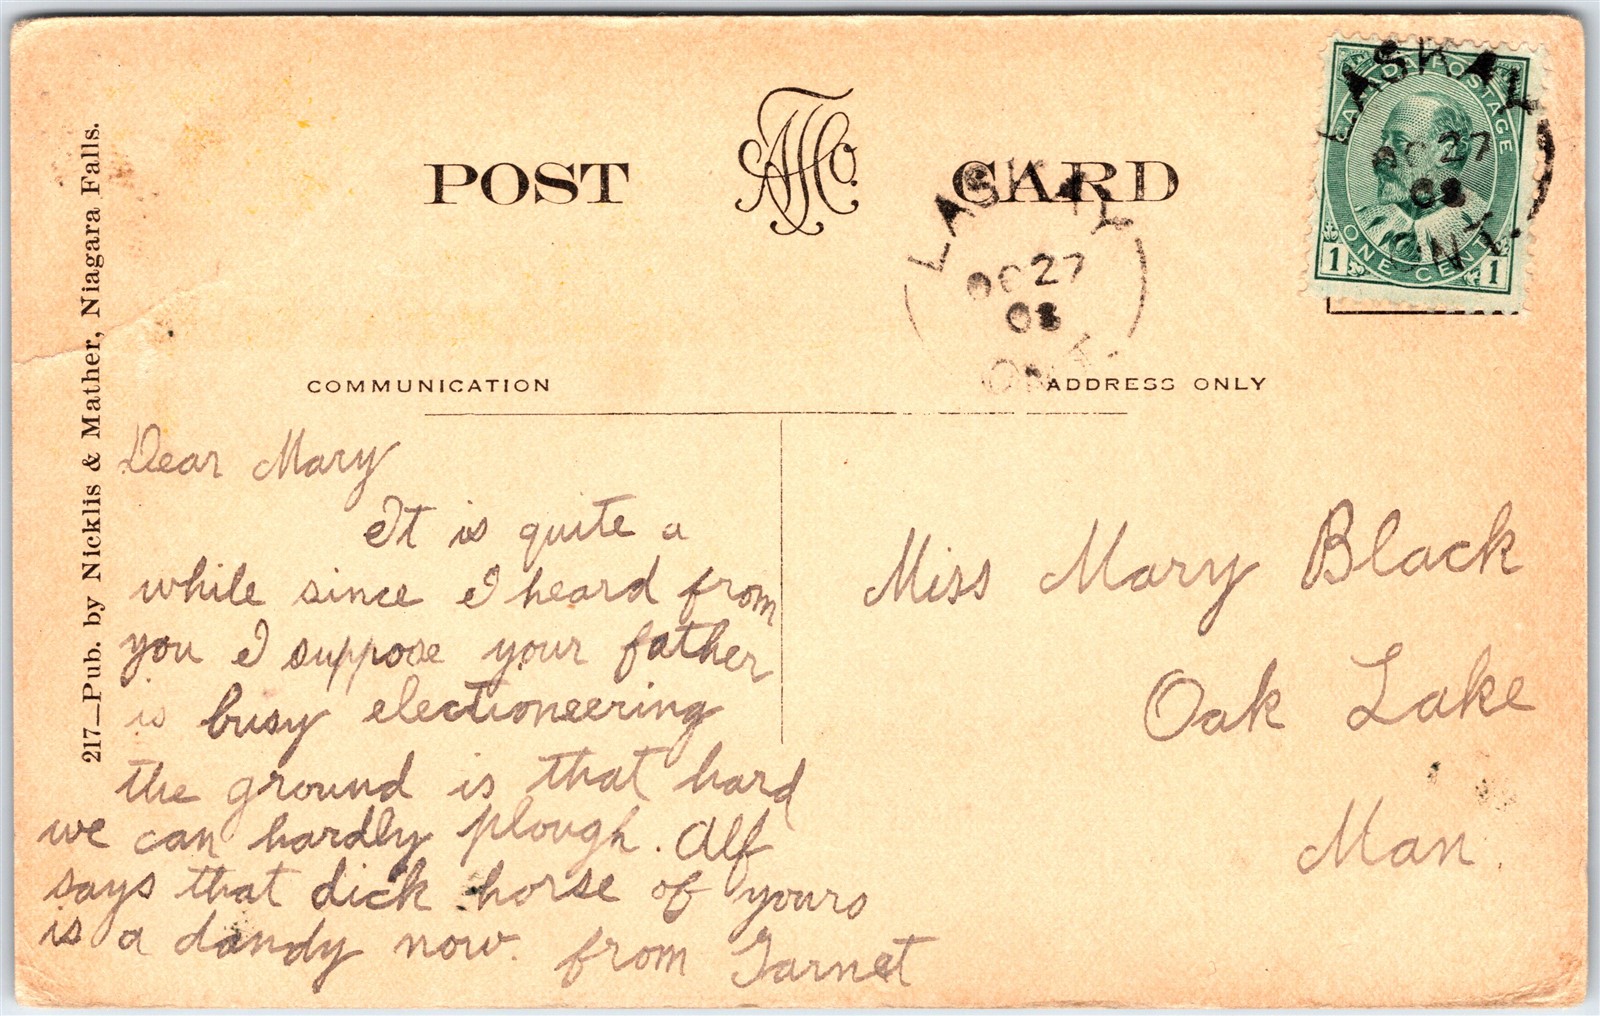 217—Pub. by Nicklis & Mather, Niagara Falls.
POST CARD
CANADA POSTAGE
ONE CENT
1 1
LASKAY
OC 27
08
ONT.
LASKAY
OC 27
08
ONT.
COMMUNICATION
ADDRESS ONLY
Dear Mary
It is quite a
while since I heard from
you I suppose your father
is busy electioneering
the ground is that hard
we can hardly plough. Alf
says that dick horse of yours
is a dandy now. from Garnet
Miss Mary Black
Oak Lake
Man.